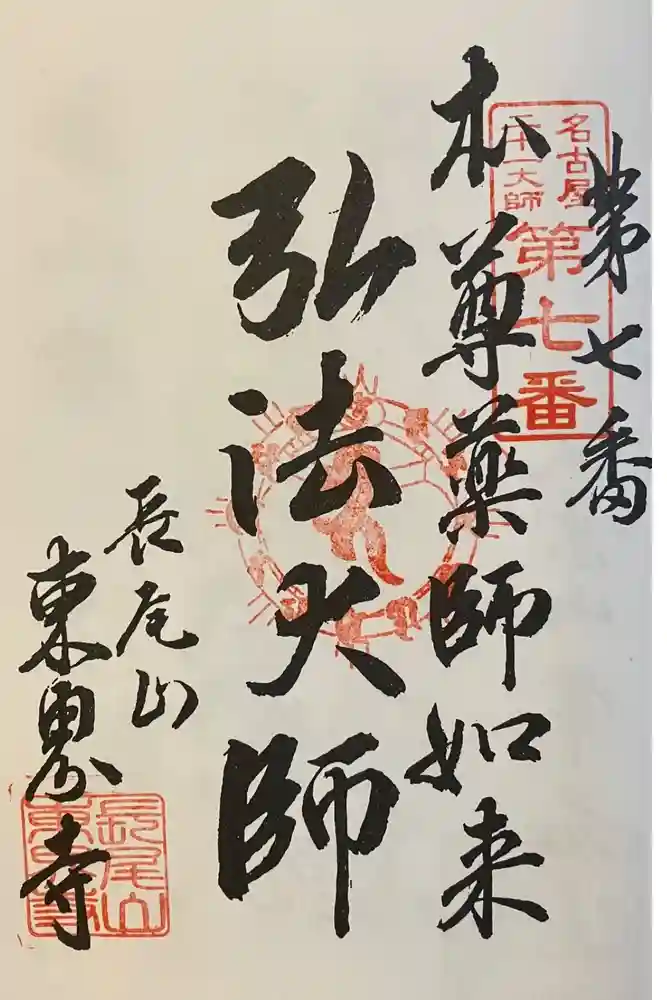 第七番
名古屋
二十一大師
第七番
本尊薬師如来
弘法大師
長尾山
東界寺
長尾山
東界寺